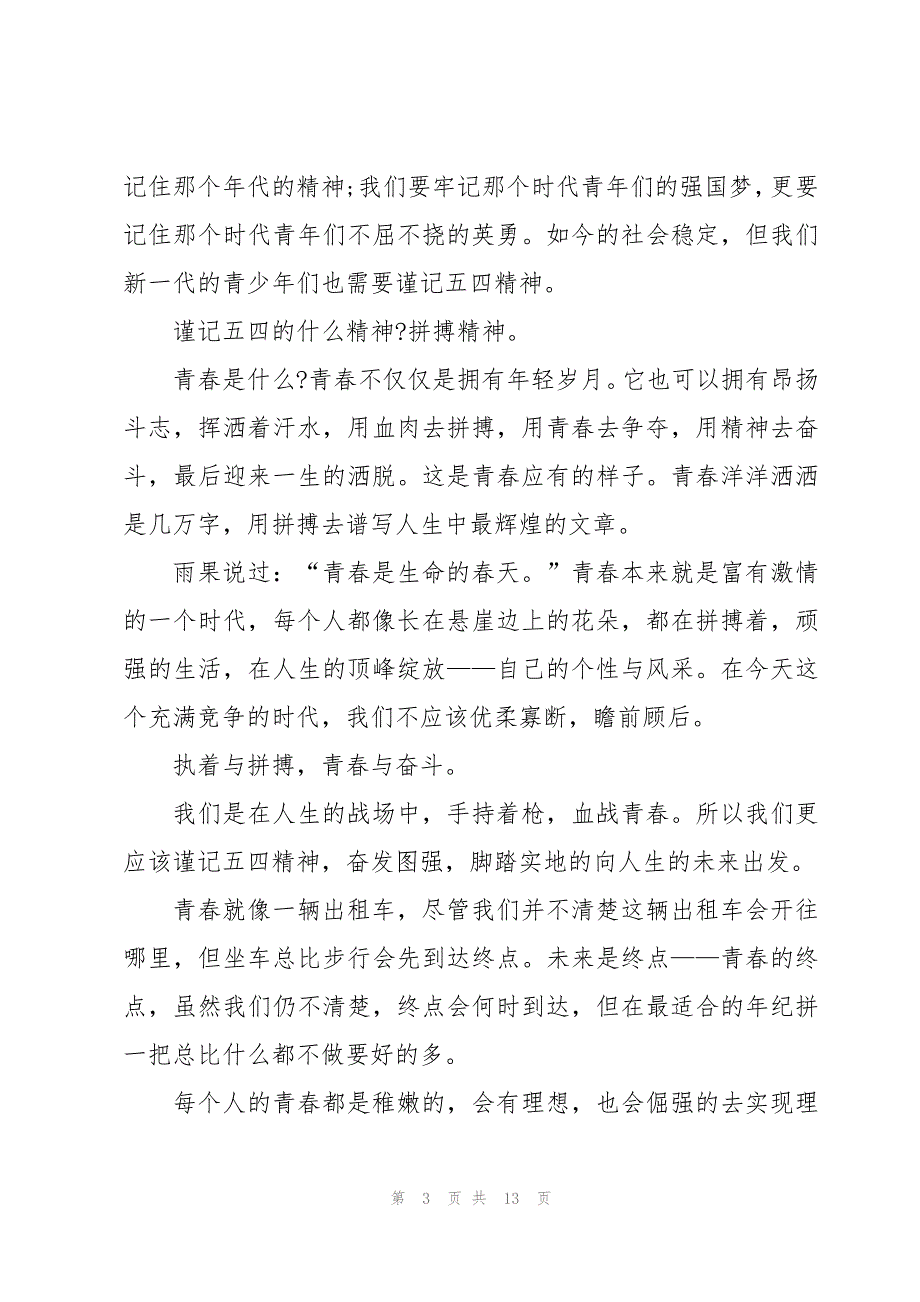 记住那个年代的精神;我们要牢记那个时代青年们的强国梦,更要
记住那个时代青年们不屈不挠的英勇。如今的社会稳定，但我们
新一代的青少年们也需要谨记五四精神。
谨记五四的什么精神?拼搏精神。
青春是什么?青春不仅仅是拥有年轻岁月。它也可以拥有昂扬
斗志，挥洒着汗水，用血肉去拼搏，用青春去争夺，用精神去奋
斗，最后迎来一生的洒脱。这是青春应有的样子。青春洋洋洒洒
是几万字，用拼搏去谱写人生中最辉煌的文章。
雨果说过：“青春是生命的春天。”青春本来就是富有激情
的一个时代，每个人都像长在悬崖边上的花朵，都在拼搏着，顽
强的生活，在人生的顶峰绽放——自己的个性与风采。在今天这
个充满竞争的时代，我们不应该优柔寡断，瞻前顾后。
执着与拼搏，青春与奋斗。
我们是在人生的战场中，手持着枪，血战青春。所以我们更
应该谨记五四精神，奋发图强，脚踏实地的向人生的未来出发。
青春就像一辆出租车，尽管我们并不清楚这辆出租车会开往
哪里，但坐车总比步行会先到达终点。未来是终点——青春的终
点，虽然我们仍不清楚，终点会何时到达，但在最适合的年纪拼
一把总比什么都不做要好的多。
每个人的青春都是稚嫩的，会有理想，也会倔强的去实现理
第 3 页 共 13 页